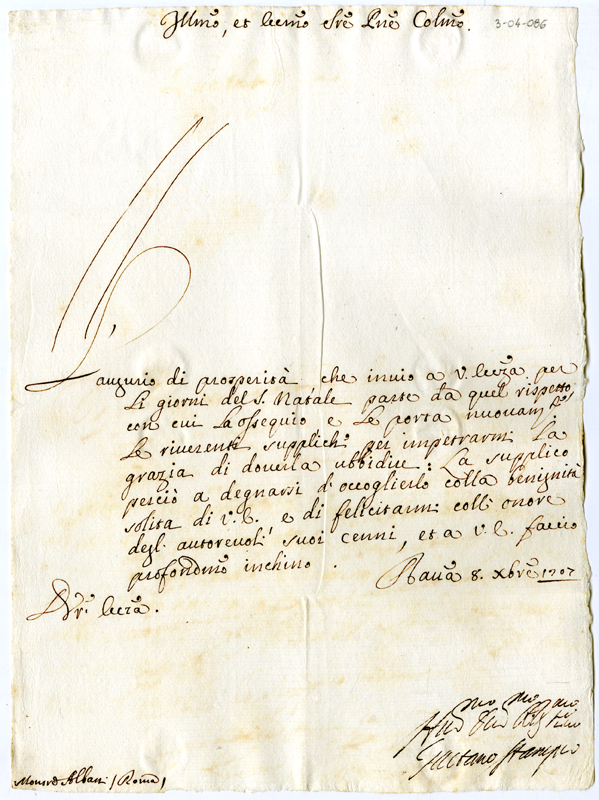 Illmo, et Eccmo Sre Pne Colmo.
3-04-086
L'augurio di prosperità che invio a V. Eccza per
li giorni del S. Natale parte da quel rispetto
con cui La ossequio e Le porta nuovam.te
Le riverenti supplich.e per impetrarmi La
grazia di doverla ubbidire: La supplico
perciò a degnarsi d'accoglierlo colla benignità
solita di V. E., e di felicitarmi coll' onore
degl' autorevoli suoi cenni, et a V. E. faccio
profondmo inchino.
Ravã 8. Xbre 1707
D. Vrã Eccza.
Gaetano Stampa
Monsre Albani / Roma /